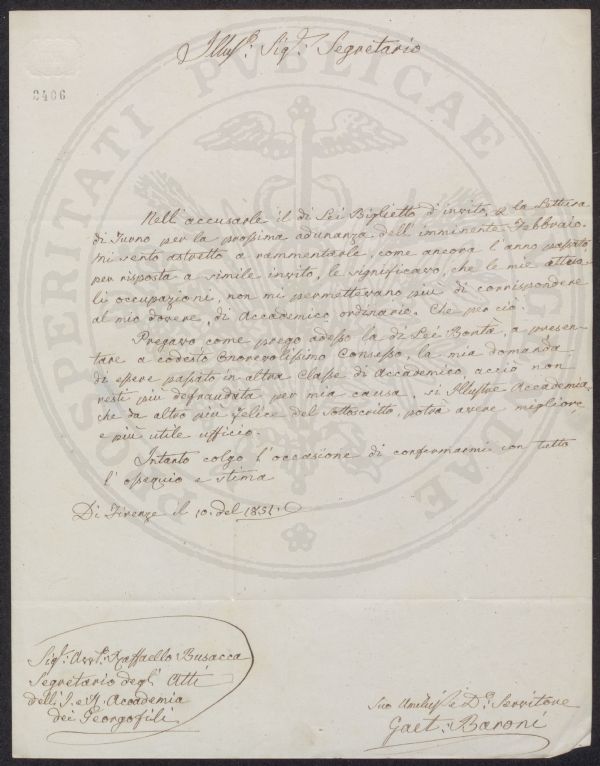 Illus:ᵐᵒ Sig:ʳ Segretario
2406
PROSPERITATI PUBLICAE AUGENDAE
Nell'accusarle il di Lei Biglietto d'invito, a la Lettura
di Turno per la prossima adunanza dell'imminente Febbraio.
Mi sento astretto a rammentarle, come ancora l'anno passato
per risposta a simile invito, le significavo, che le mie attua-
li occupazioni, non mi permettevano piu di corrispondere
al mio dovere, di Accademico ordinario. Che per ciò
Pregavo come prego adesso la di Lei Bontà, a presen-
tare a codesto Onorevolissimo Consesso, la mia domanda
di essere passato in altra Classe di Accademico, acciò non
resti piu defraudata per mia causa, sì Illustre Accademia
che da altro piu felice del sottoscritto, potrà avere migliore
e più utile ufficio.
Intanto colgo l'occasione di confermarmi con tutto
l'ossequio e stima
Di Firenze il 10. del 1851.
Sig:ʳ Avv:ᵗᵒ Raffaello Busacca
Segretario degl' Atti
dell' I. e R. Accademia
dei Georgofili
Suo Umiliss. e D: Servitore
Gaet: Baroni